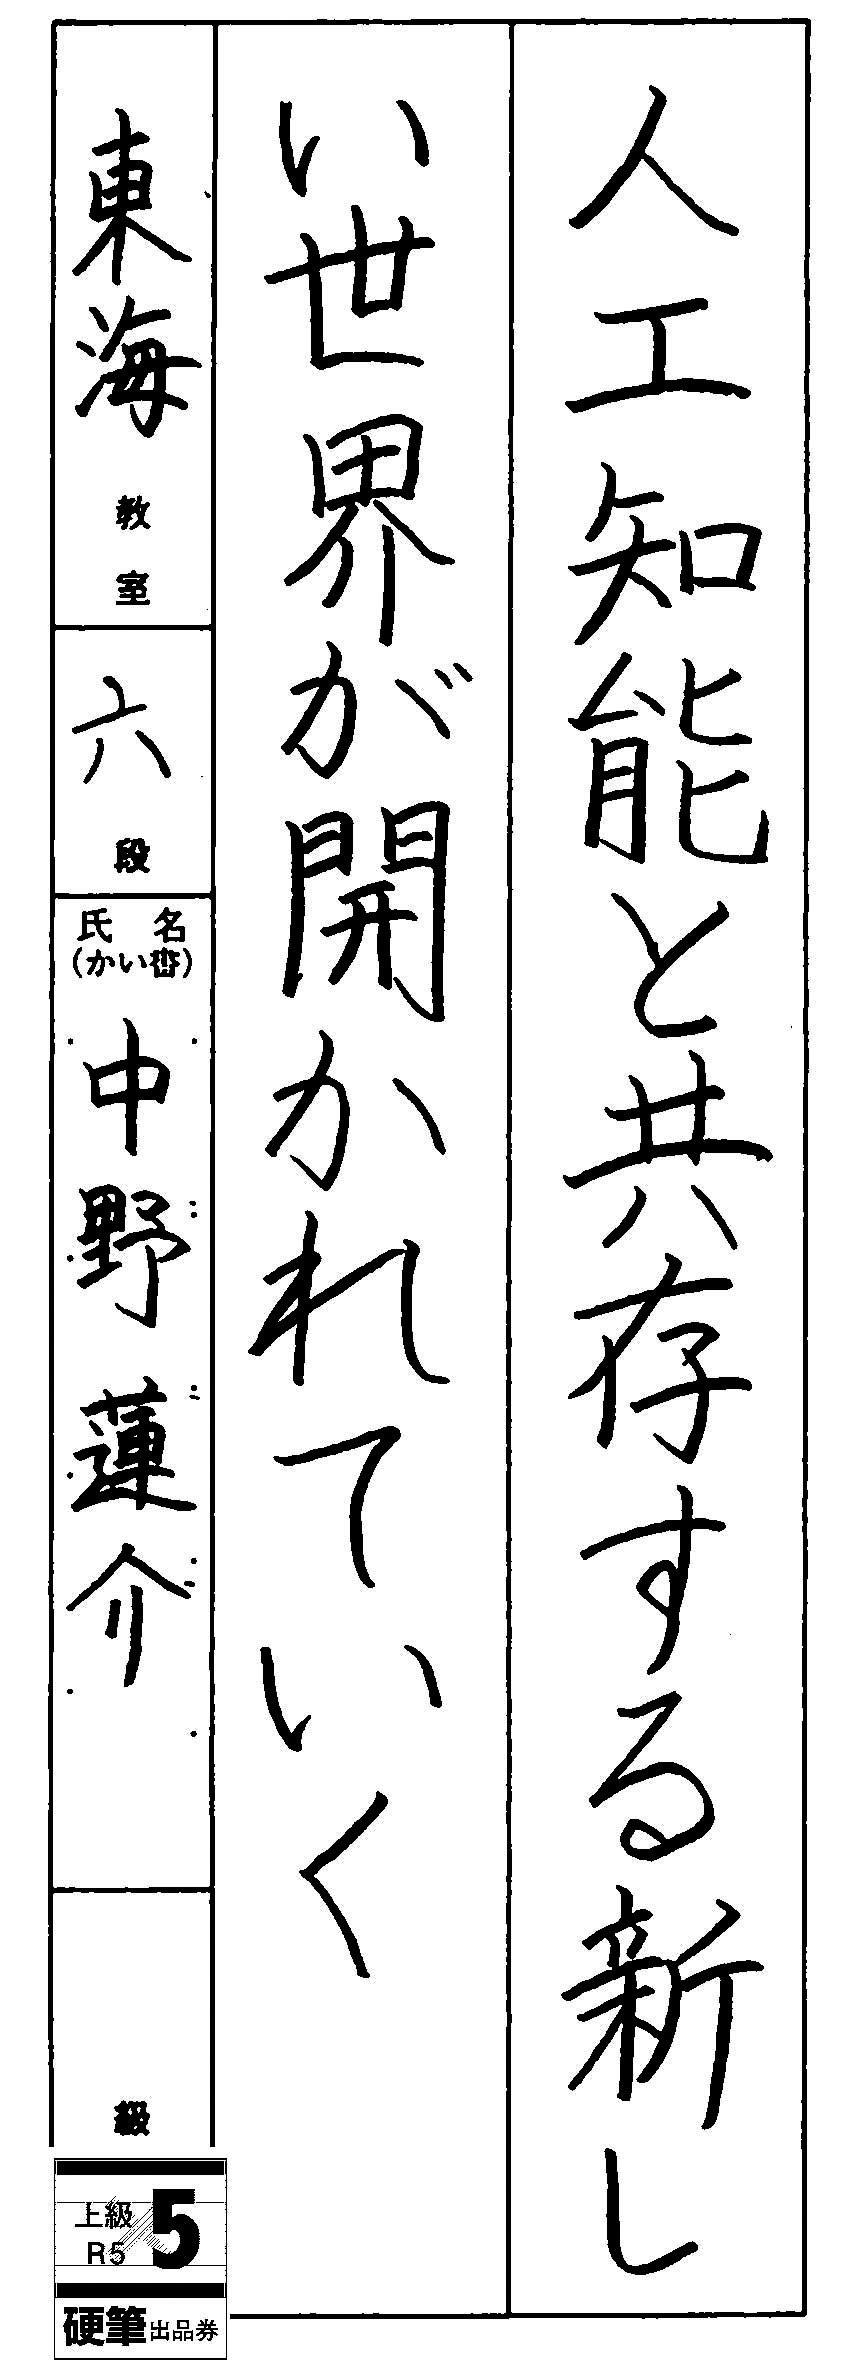 人工知能と共存する新し
い世界が開かれていく
東海教室
六段
氏名
(かい書)
中野蓮介
級
上級
R5
5
硬筆出品券